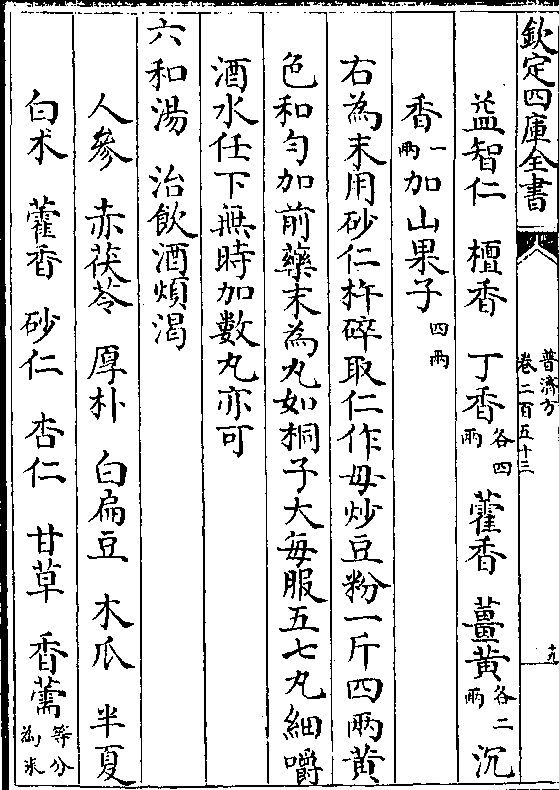 欽定四庫全書
普濟方
卷二百五十三
十九
益智仁 檀香 丁香各四兩 藿香 薑黄各二兩 沉
香一兩加山果子四兩
右為末用砂仁杵碎取仁作母炒豆粉一斤四兩黄
色和勻加前藥末為丸如桐子大每服五七丸細嚼
酒水任下無時加數丸亦可
六和湯 治飲酒煩渴
人參 赤茯苓 厚朴 白扁豆 木瓜 半夏
白术 藿香 砂仁 杏仁 甘草 香薷等分為末